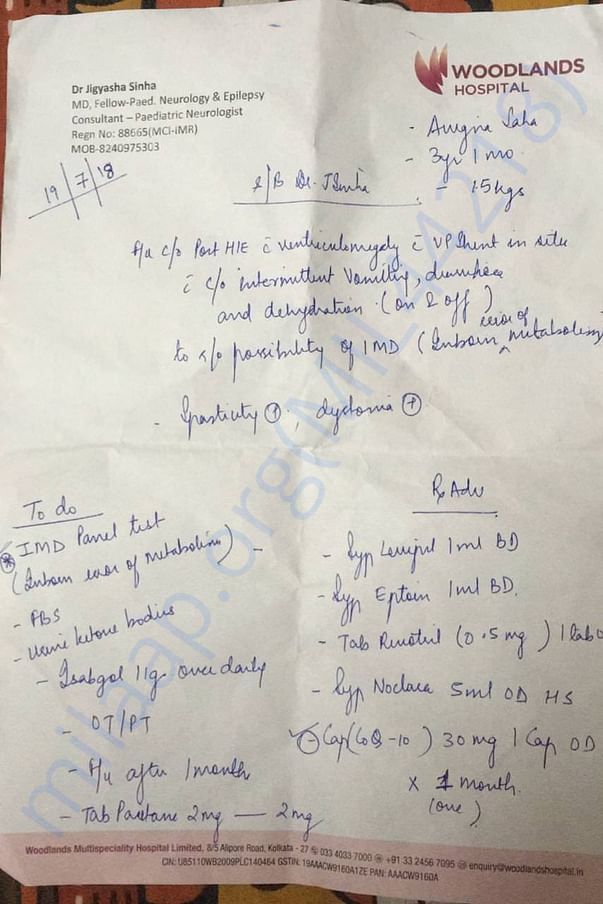 Dr Jigyasha Sinha
MD, Fellow-Paed. Neurology & Epilepsy
Consultant – Paediatric Neurologist
Regn No: 88665(MCI-IMR)
MOB-8240975303
WOODLANDS
HOSPITAL
19/7/18
- Saha
- 3yr 1 mo
- 15kgs
S/B Dr. J Sinha
F/u c/o Post HIE c̄ ventriculomegaly c̄ VP Shunt in situ
c̄ c/o intermittent vomiting, diarrhoea
and dehydration. (on & off)
to r/o possibility of IMD (Inborn error of metabolism)
- Spasticity ⊕, dystonia ⊕
To do
IMD Panel test
(Inborn error of metabolism) -
- FBS
- Urine ketone bodies
- Isabgol 11g over daily
- OT/PT
- F/u after 1 month
- Tab Pacitane 2mg — 2mg
Rx Adv
- Syp 1ml BD
- Syp Eptoin 1ml BD.
- Tab (0.5mg) 1 tab
- Syp 5ml OD HS
- Cap (CoQ-10) 30mg 1 Cap OD
x 1 month.
(one)
Woodlands Multispeciality Hospital Limited, 8/5 Alipore Road, Kolkata - 27 033 4033 7000 +91 33 2456 7095 enquiry@woodlandshospital.in
CIN: U85110WB2009PLC140464 GSTIN: 19AAACW9160A1ZE PAN: AAACW9160A
milaap.org(MIL44218)